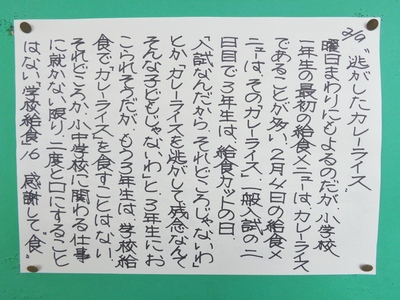 3/9 "逃がしたカレーライス"
曜日まわりにもよるのだが、小学校、
一年生の最初の給食メニューは、カレーライス
であることが多い。2月4日の給食メ
ニューは、そのカレーライス。一般入試の二
日目で3年生は、給食カットの日。
「入試なんだから、それどころじゃないわ」
とか「カレーライスを逃がして残念なんて
そんな子どもじゃないわ」と、3年生にお
こられそうだが、もう3年生は、学校給
食で「カレーライス」を食すことはない。
それどころか、小中学校に関わる仕事
に就かない限り、二度と口にすること
はない「学校給食」。16 感謝して"食"